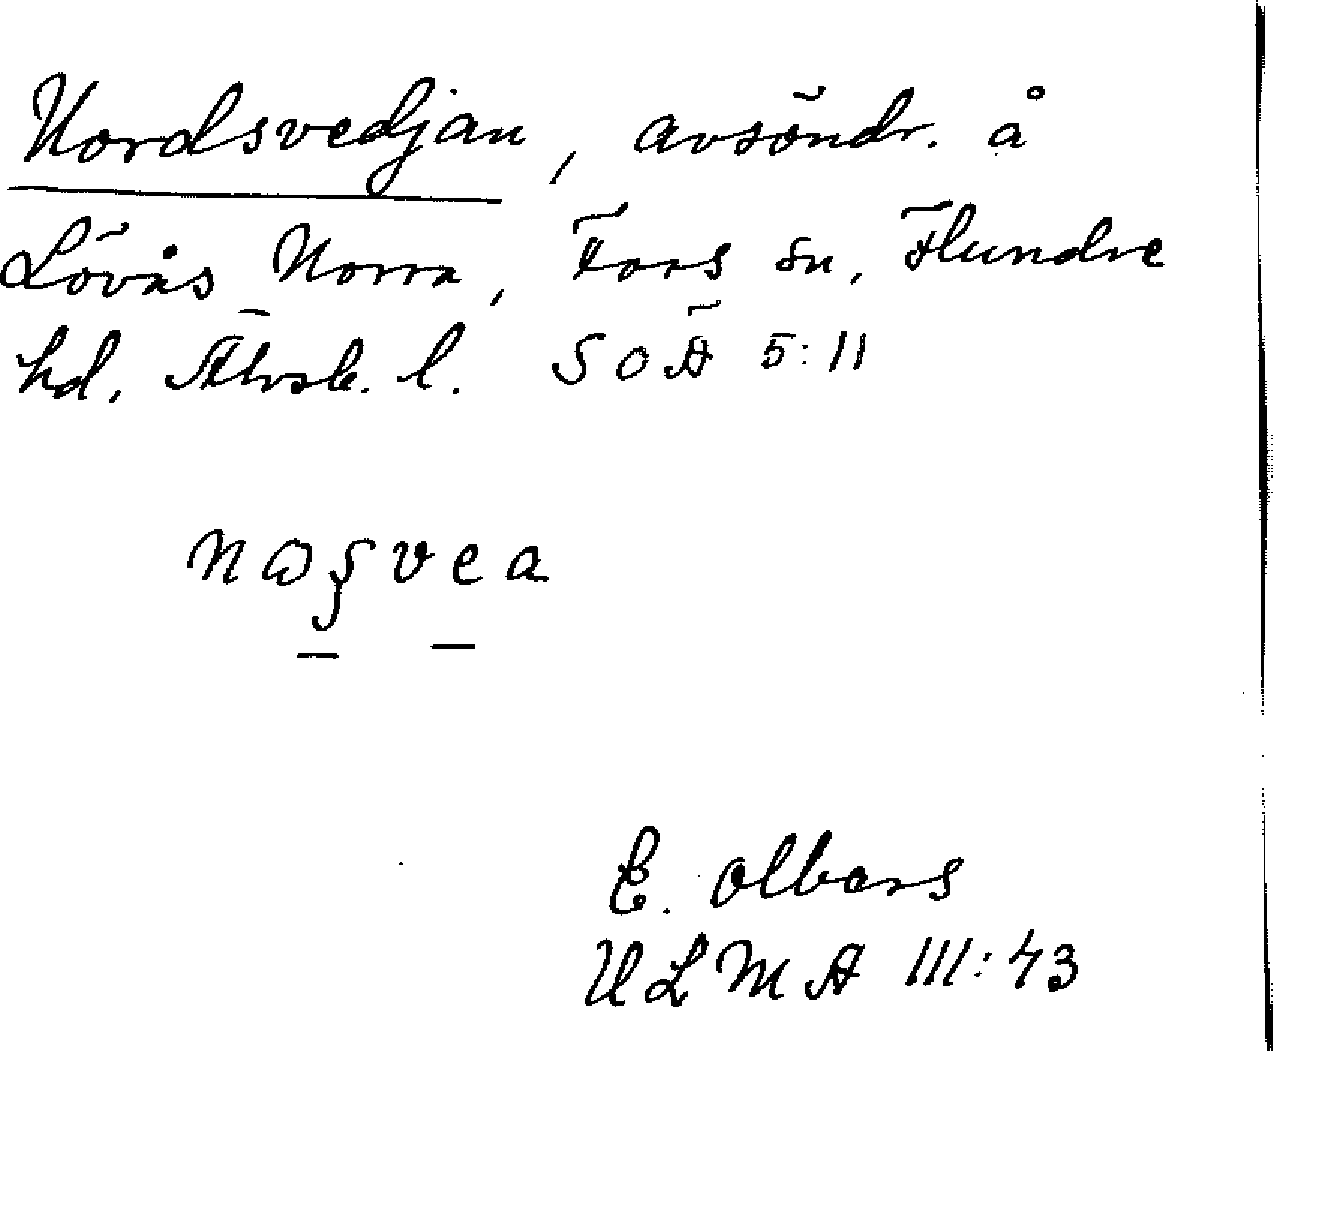 Nordsvedjan, avsöndr. å
Lövås Norra, Fors sn, Flundre
hd, Älvsb. l. SOÄ 5:11
E. Olbers
ULMA III:43